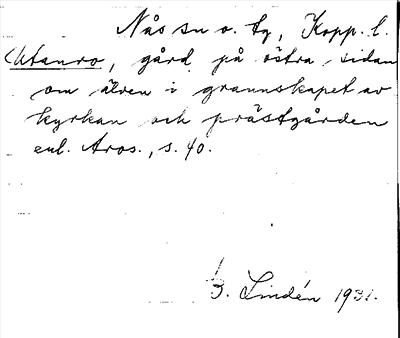 Nås sn o. tg, Kopp. l.
Utanro, gård på östra sidan
om älven i grannskapet av
kyrkan och prästgården
enl. Aros., s. 40.
B. Lindén 1931.